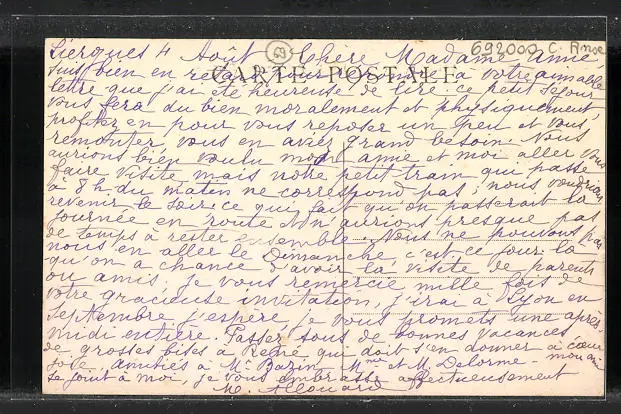 69
692000 C. Anse
CARTE POSTALE
Liergues 4 Août Chère Madame Annie,
suis bien en retard pour répondre à votre aimable
lettre que j'ai été heureuse de lire. ce petit séjour
vous fera du bien moralement et physiquement,
profitez en pour vous reposer un peu et vous
remonter, vous en aviez grand besoin. Nous
aurions bien voulu mon amie et moi aller vous
faire visite mais notre petit tram qui passe
à 8 h. du matin ne correspond pas; nous voudrions
revenir le soir ce qui fait qu'on passerait la
journée en route. Non aurions presque pas
de temps à rester ensemble. Nous ne pouvons pas
nous en aller le Dimanche, c'est ce jour-là
qu'on a chance d'avoir la visite de parents
ou amis, je vous remercie mille fois de
votre gracieuse invitation, j'irai à Lyon en
Septembre j'espère, je vous promets une après
midi entière. Passez tous de bonnes vacances,
de grosses bises à René qui doit s'en donner à cœur
joie. Amitiés à Mr Bazin Mme et M. Delorme. mon amie
se joint à moi, je vous embrasse affectueusement
M. Allouard